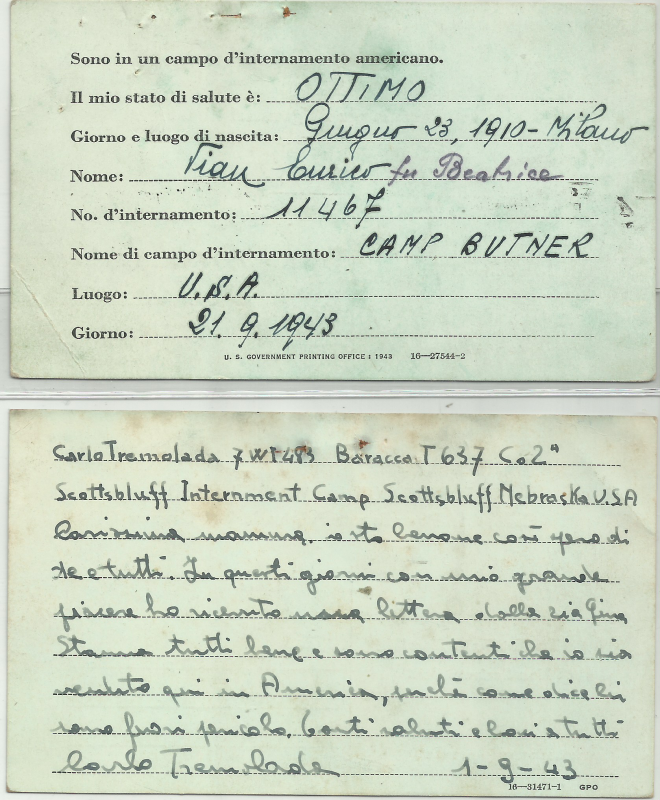 Sono in un campo d'internamento americano.
Il mio stato di salute è: OTTIMO
Giorno e luogo di nascita: Giugno 23, 1910 - Milano
Nome: Enrico fu Beatrice
No. d'internamento: 11467
Nome di campo d'internamento: CAMP BUTNER
Luogo: U.S.A.
Giorno: 21. 9. 1943
U. S. GOVERNMENT PRINTING OFFICE : 1943 16—27544-2
Carlo Tremolada 7 WI 483 Baracca T 637 Co. 2ª
Scottsbluff Internment Camp Scottsbluff Nebraska U.S.A
Carissima mamma, io sto benone così spero di
te e tutti. In questi giorni con mio grande
piacere ho ricevuto una lettera dalla zia Gina
Stanno tutti bene e sono contenti che io sia
venduto qui in America, perchè come dice lei
sono fuori pericolo. Tanti saluti e baci a tutti
Carlo Tremolada 1-9-43
16—31471-1 GPO